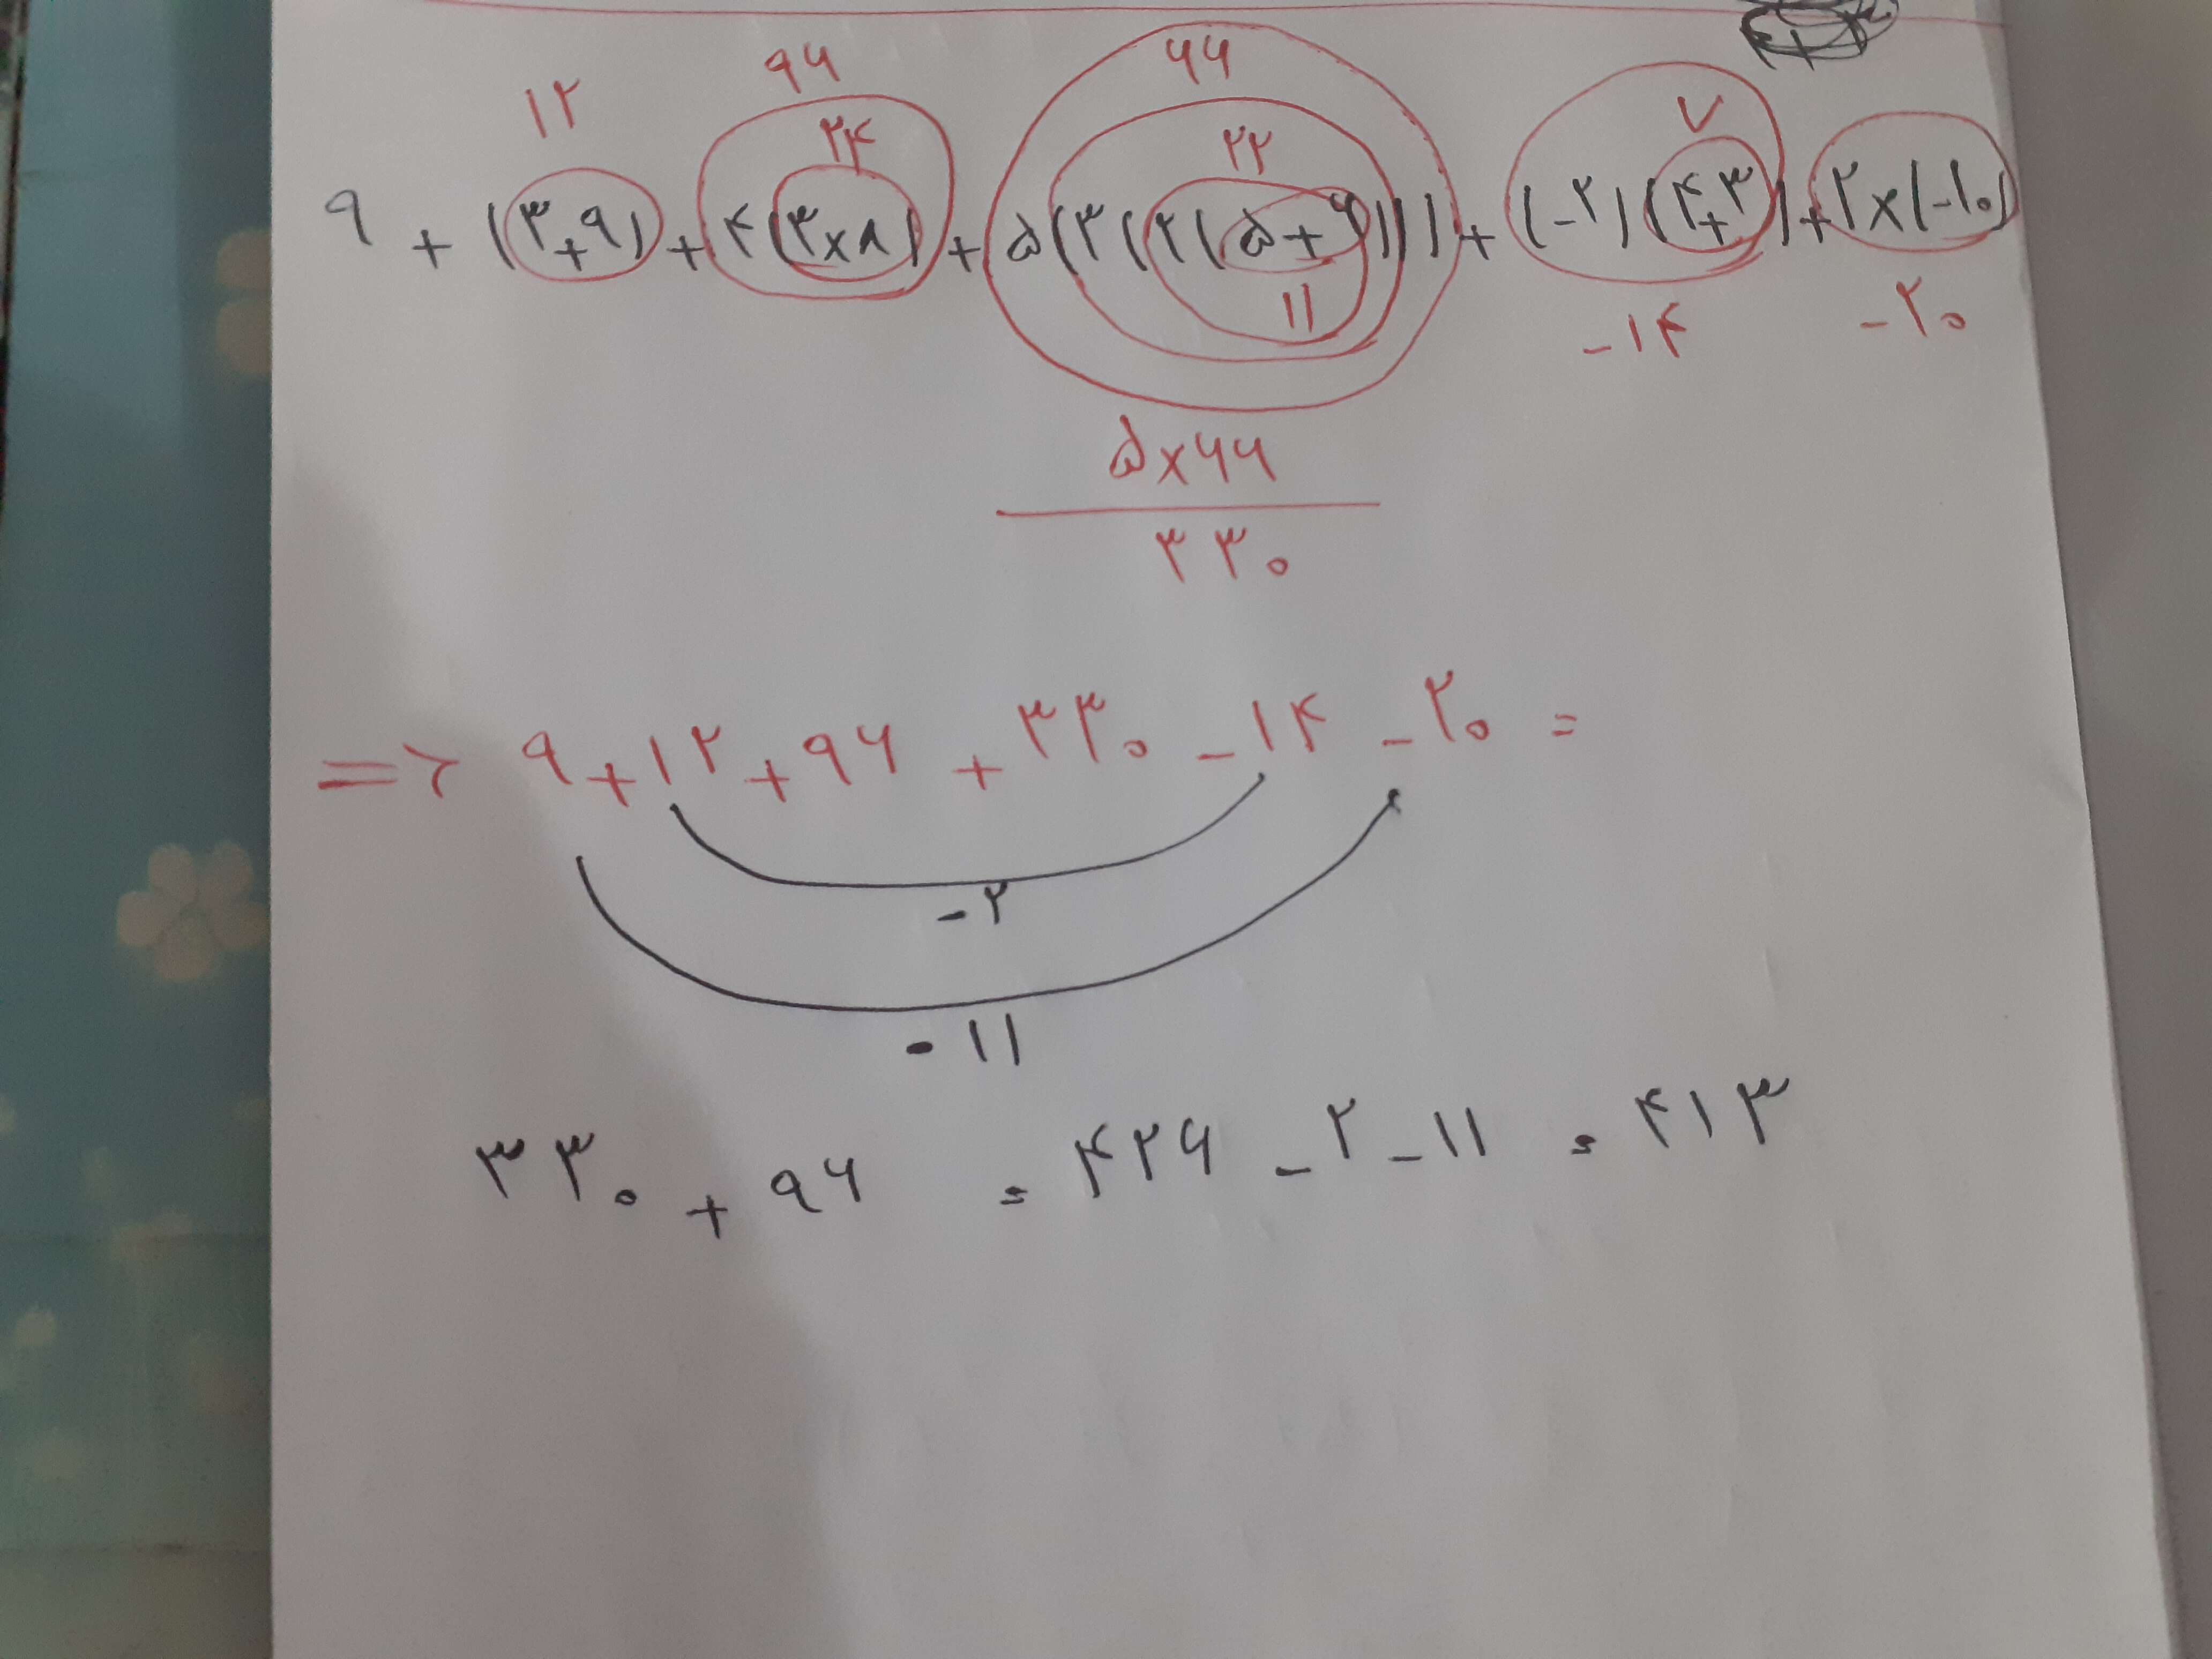 ۱۲ ۹۶ ۲۴ ۶۶ ۲۲ ۷
۹ + (۳+۹) + ۴(۳×۸) + ۵(۳(۲(۵+۶))) + (-۲)(۴+۳) + ۲×(-۱۰)
۱۱ -۱۴ -۲۰
۵×۶۶
۳۳۰
=> ۹+۱۲+۹۶+۳۳۰-۱۴-۲۰=
-۲
-۱۱
۳۳۰+۹۶=۴۲۶-۲-۱۱=۴۱۳